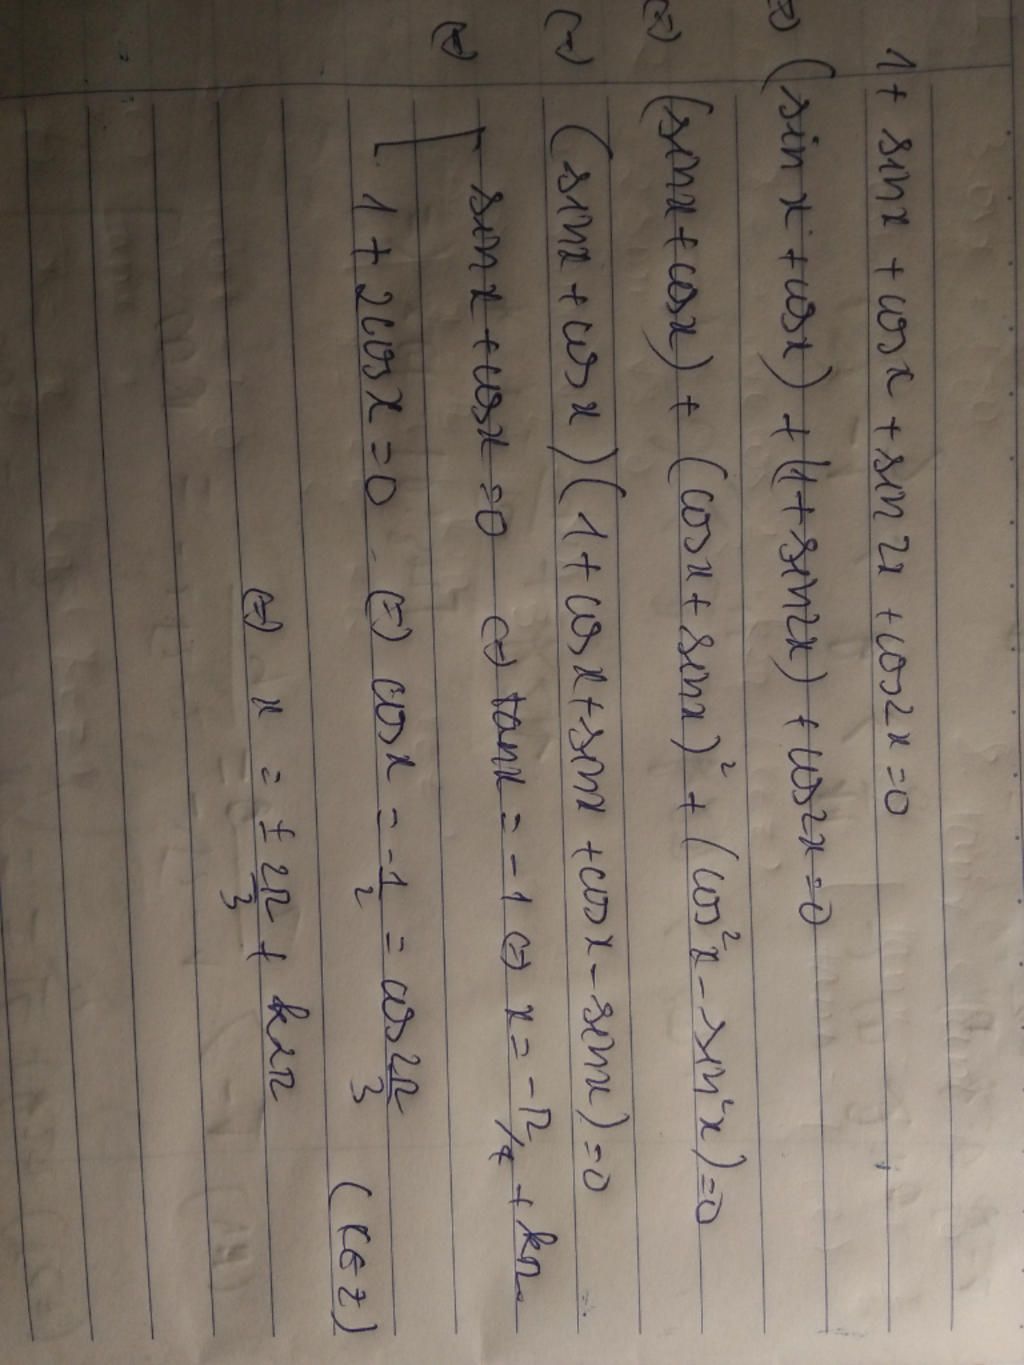 1 + sinx + cosx + sin2x + cos2x = 0
(=) (sinx + cosx) + (1 + sin2x) + cos2x = 0
(=) (sinx + cosx) + (cosx + sinx)² + (cos²x - sin²x) = 0
(=) (sinx + cosx)(1 + cosx + sinx + cosx - sinx) = 0
(=) [ sinx + cosx = 0 (=) tanx = -1 (=) x = -π/4 + kπ
1 + 2cosx = 0 (=) cosx = -1/2 = cos 2π/3
(=) x = ± 2π/3 + k2π (k∈Z)